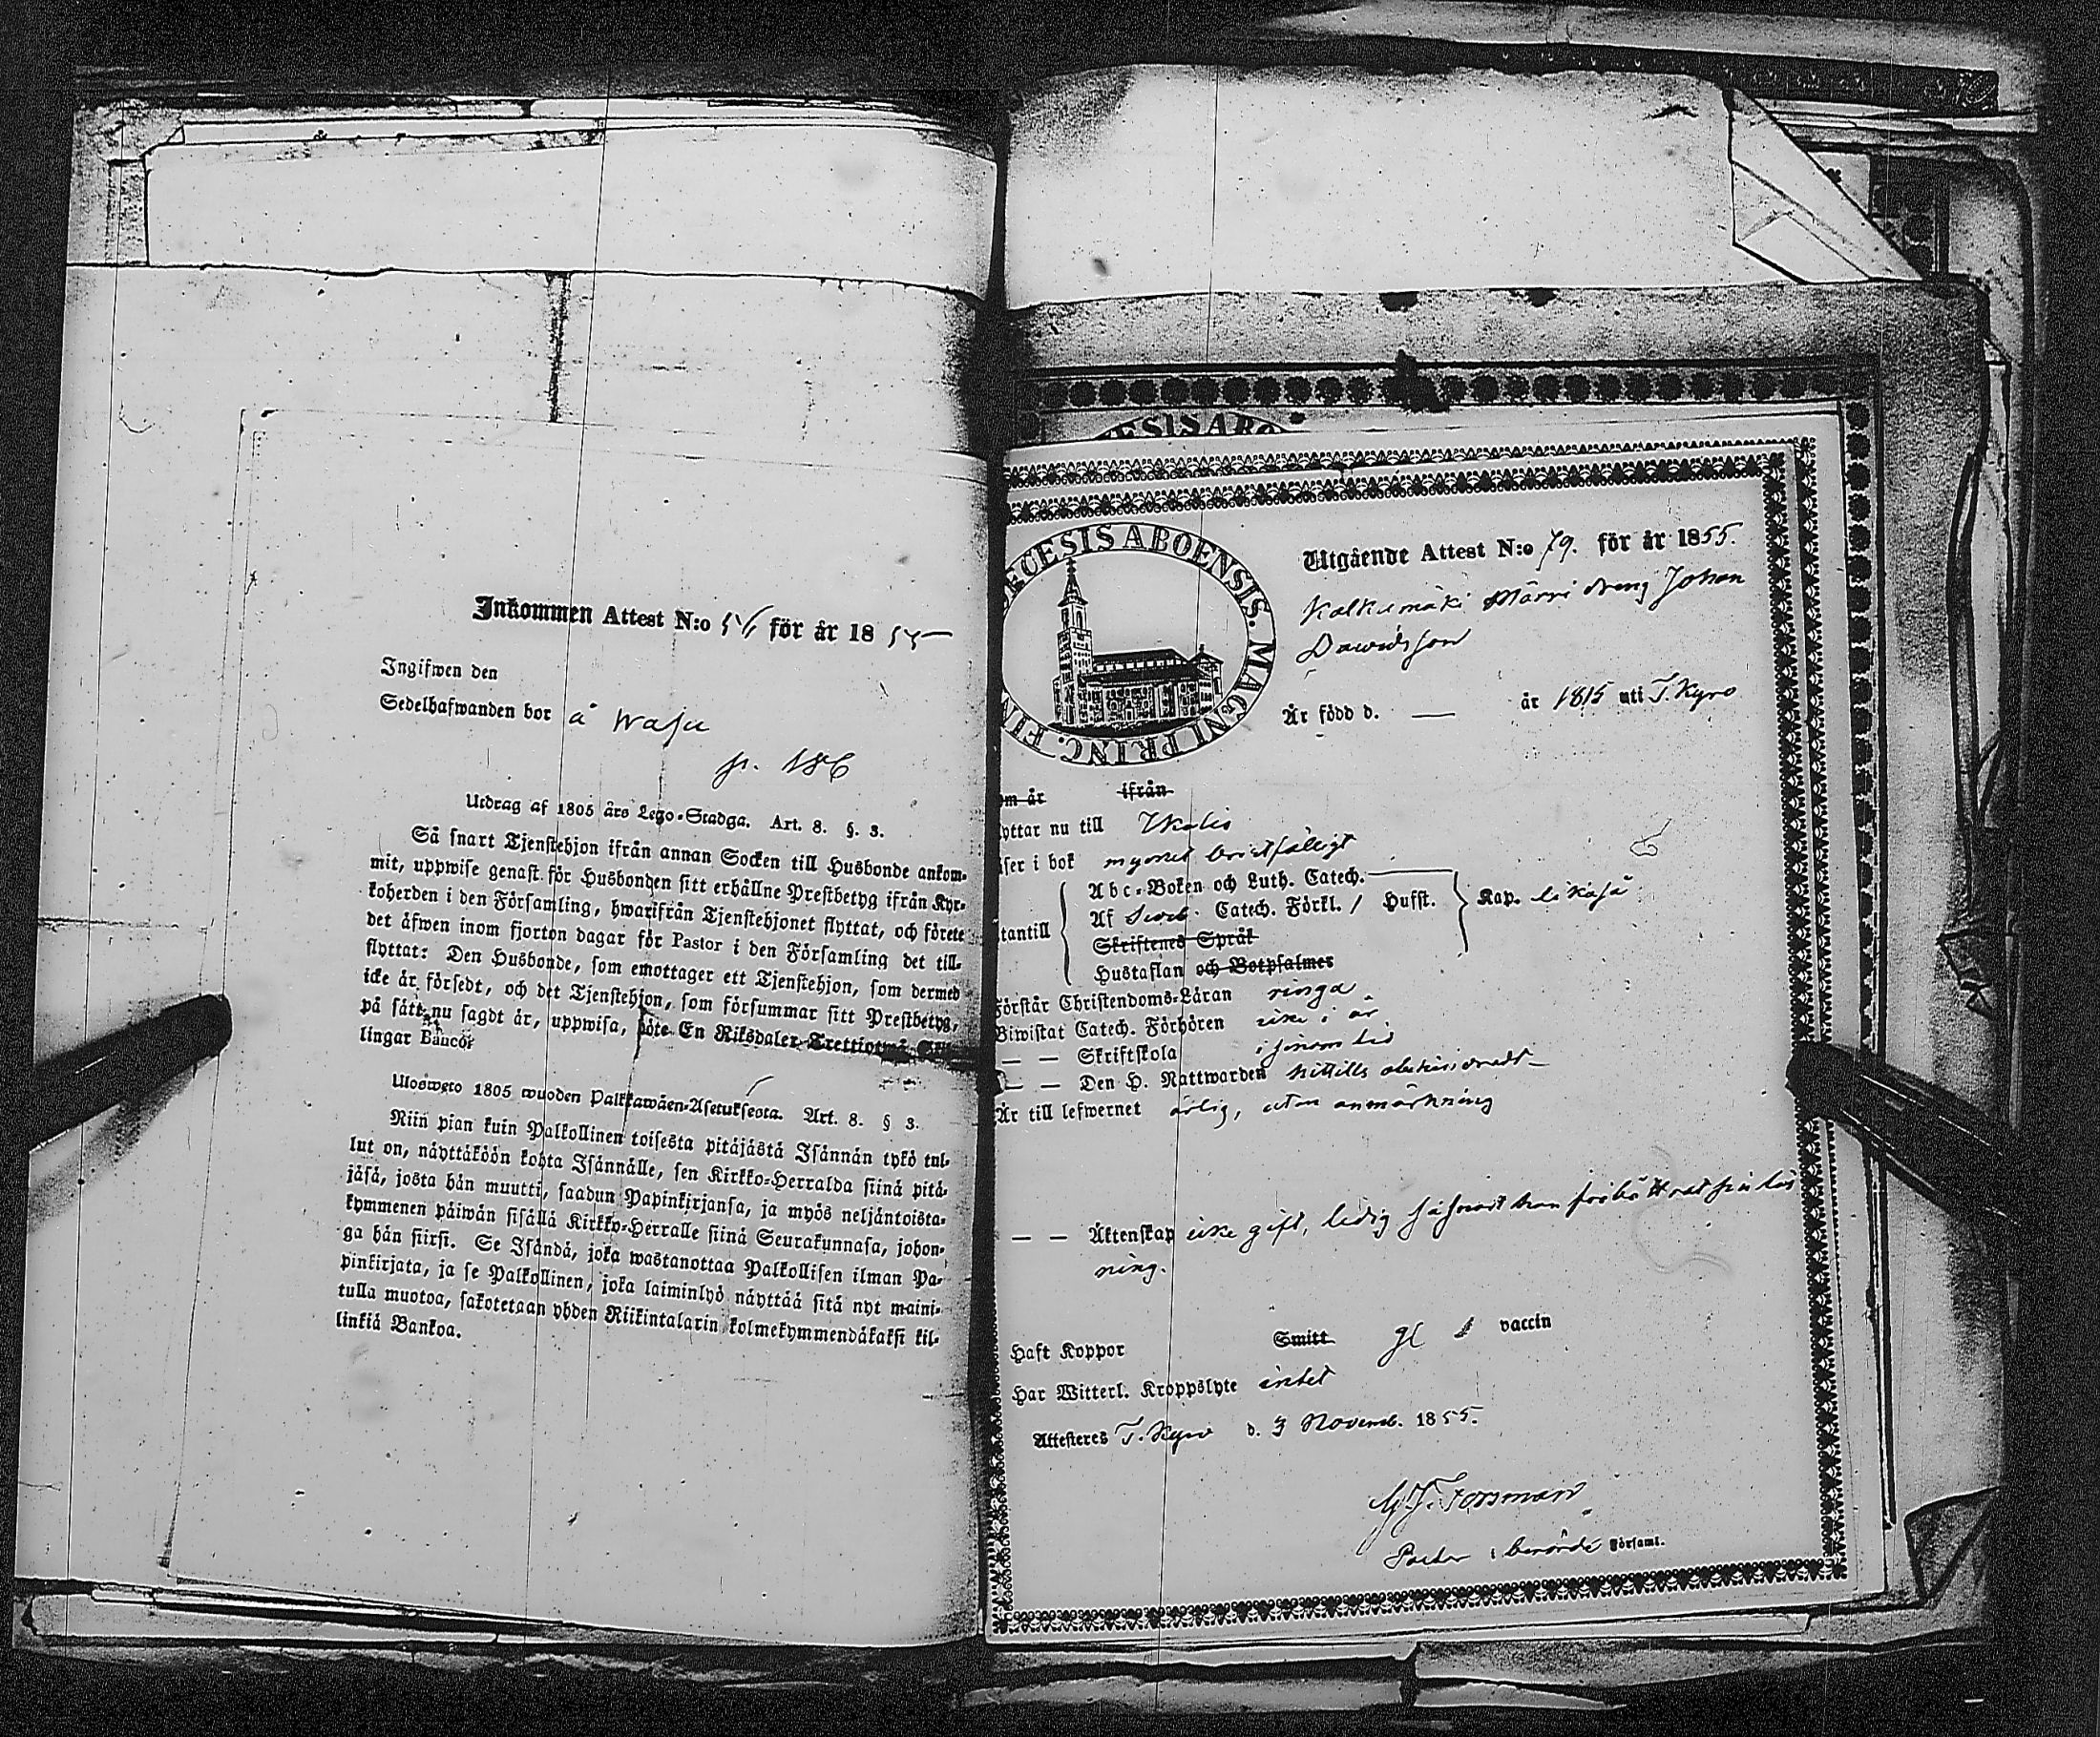 Inkommen Attest N:o 54 för år 1855
Ingifwen den
Sedelhafwanden bor å Waju
p. 186
Utdrag af 1805 års Lego-Stadga. Art. 8. §. 3.
Så snart Tjenstehjon ifrån annan Socken till Husbonde ankom-
mit, uppwise genast för Husbonden sitt erhållne Prestbetyg ifrån Kyr-
koherden i den Församling, hwarifrån Tjenstehjonet flyttat, och förete
det äfwen inom fjorton dagar för Pastor i den Församling det till-
flyttat: Den Husbonde, som emottager ett Tjenstehjon, som dermed
icke är försedt, och det Tjenstehjon, som försummar sitt Prestbetyg,
på sätt nu sagdt är, uppwisa, böte En Riksdaler Trettiotwå
lingar Banco.
Ulosweto 1805 wuoden Palkkawäen-Asetuksesta. Art. 8. § 3.
Niin pian kuin Palkollinen toisesta pitäjästä Isännän tykö tul-
lut on, näyttäköön kohta Isännälle, sen Kirkko-Herralda siinä pitä-
jäsä, josta hän muutti, saadun Papinkirjansa, ja myös neljäntoista-
kymmenen päiwän sisällä Kirkko-Herralle siinä Seurakunnasa, johon-
ga hän siirsi. Se Isändä, joka wastanottaa Palkollisen ilman Pa-
pinkirjata, ja se Palkollinen, joka laiminlyö näyttää sitä nyt maini-
tulla muotoa, sakotetaan yhden Riikintalarin kolmekymmendäkaksi kil-
linkiä Bankoa.
ESIS ABO
ECESIS ABOENSIS. MAGNI PRINC. FIN
Utgående Attest N:o 79. för år 1855.
Kalkumäki Märri dreng Johan
Davidsson
Är född d. — år 1815 uti T. Kyro
om år ifrån
yttar nu till Ikalis
äser i bok mycket bristfälligt
Abc-Boken och Luth. Catech.
Af Sveb. Catech. Förkl. / Husst. Kap. likaså
tantill
Skriftenes Språk
Hustaflan och Botpsalmer
Förstår Christendoms-Läran ringa
Biwistat Catech. Förhören icke i år
— — Skriftskola i sinom tid
— — Den H. Nattwarden hittills obehindradt
Är till lefwernet ärlig, utan anmärkning
— — Äktenskap icke gift, ledig så snart han förbättrat sin läs
ning.
Haft Koppor Smitt vaccin
Har Witterl. Kroppslyte intet
Attesteres T. Kyro d. 3 Novemb. 1855.
Forsman
Pastor i berörde Församl.